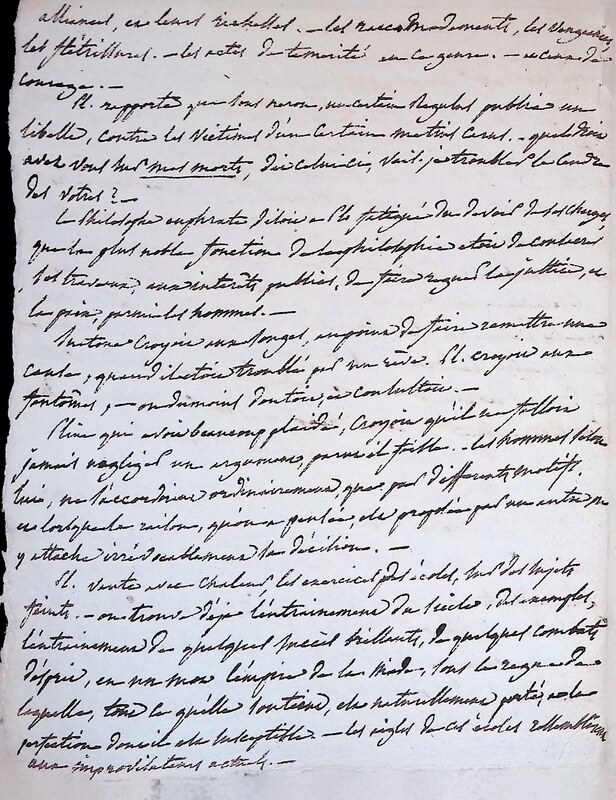 alliances, en leurs richesses. – les raccommodements, les vengeances
les flétrissures. – les actes de témérité en ce genre. – et ceux de
courage. –
Pl. rapporte que sous neron, un certain Regulus publia un
libelle, contre les victimes d'un certain metius carus. – quel droit
avez vous sur mes morts, dit celui ci, vais-je troubler la cendre
des votres ? –
Le Philosophe euphrate disoit a Pl. fatigué des devoirs de ses charges,
que la plus noble fonction de la philosophie etoit de consacrer
ses travaux aux interêts publics, de faire regner la justice, et
la paix, parmi les hommes. –
Suetone croyoit aux songes, au point de faire remettre une
cause, quand il etoit troublé par un rêve. Pl. croyoit aux
fantômes, – ou du moins doutoit, et consultoit. –
Pline qui avoit beaucoup plaidé, croyoit qu'il ne falloit
jamais negliger un argument, parut il foible. les hommes selon
lui, ne s'accordent ordinairement, que par differents motifs
et lorsque la raison, qu'on a pensée, est proposée par un autre on
y attache irrévocablement sa décision. –
Pl. vante avec chaleur, les exercices des écoles, sur des sujets
feints. – on trouve déja l'entrainement du siècle, des exemples,
l'entrainement de quelques succès brillants, de quelques combats
d'esprit, en un mot l'empire de la mode, sous le regne de
laquelle, tout ce qu'elle soutient, est naturellement porté, a la
perfection dont il est susceptible – les aigles de ces écoles ressembloient
aux improvisateurs actuels. –